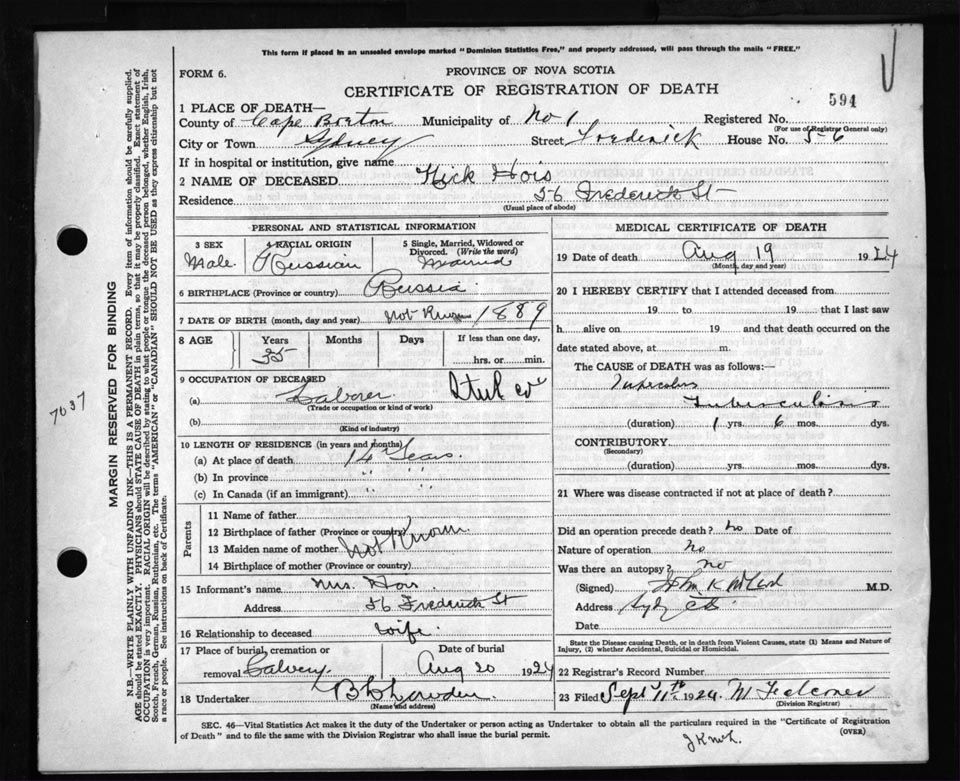 This form if placed in an unsealed envelope marked "Dominion Statistics Free," and properly addressed, will pass through the mails "FREE."
FORM 6.
PROVINCE OF NOVA SCOTIA
CERTIFICATE OF REGISTRATION OF DEATH
594
1 PLACE OF DEATH—
County of Cape Breton Municipality of No 1 Registered No.
(For use of Registrar General only)
City or Town Sydney Street Frederick House No. 56
If in hospital or institution, give name
2 NAME OF DECEASED Nick Hois
Residence 56 Frederick St
(Usual place of abode)
PERSONAL AND STATISTICAL INFORMATION
3 SEX 4 RACIAL ORIGIN 5 Single, Married, Widowed or Divorced. (Write the word)
Male Russian Married
6 BIRTHPLACE (Province or country) Russia
7 DATE OF BIRTH (month, day and year) Not Known 1889
8 AGE Years Months Days If less than one day,
35 hrs. or min.
9 OCCUPATION OF DECEASED
(a) Laborer Steel Co
(Trade or occupation or kind of work)
(b)
(Kind of industry)
10 LENGTH OF RESIDENCE (in years and months)
(a) At place of death 14 Years
(b) In province " "
(c) In Canada (if an immigrant) " "
Parents
11 Name of father
12 Birthplace of father (Province or country)
13 Maiden name of mother Not Known
14 Birthplace of mother (Province or country)
15 Informant's name Mrs. Hois
Address 56 Frederick St
16 Relationship to deceased wife
17 Place of burial, cremation or removal Date of burial
Calvery Aug 20 1924
18 Undertaker
(Name and address)
MEDICAL CERTIFICATE OF DEATH
19 Date of death Aug 19 1924
(Month, day and year)
20 I HEREBY CERTIFY that I attended deceased from
19 to 19 that I last saw
h alive on 19 and that death occurred on
date stated above, at m.
The CAUSE OF DEATH was as follows:
Tuberculosis
(duration) 1 yrs. 6 mos. dys.
CONTRIBUTORY
(Secondary)
(duration) yrs. mos. dys.
21 Where was disease contracted if not at place of death?
Did an operation precede death? no Date of
Nature of operation no
Was there an autopsy? no
(Signed) M.D.
Address
Date
State the Disease causing Death, or in death from Violent Causes, state (1) Means and Nature of Injury, (2) whether Accidental, Suicidal or Homicidal.
22 Registrar's Record Number
23 Filed Sept 11th 1924. M Falconer
(Division Registrar)
SEC. 46—Vital Statistics Act makes it the duty of the Undertaker or person acting as Undertaker to obtain all the particulars required in the "Certificate of Registration
of Death" and to file the same with the Division Registrar who shall issue the burial permit.
(OVER)
7037
MARGIN RESERVED FOR BINDING
N.B.—WRITE PLAINLY WITH UNFADING INK—THIS IS A PERMANENT RECORD. Every item of information should be carefully supplied.
AGE should be stated EXACTLY. PHYSICIANS should STATE CAUSE OF DEATH in plain terms, so that it may be properly classified. Exact statement of
OCCUPATION is very important. RACIAL ORIGIN will be described by stating to what people or tongue the deceased person belonged, whether English, Irish,
Scotch, French, German, Russian, Ruthenian, etc. The terms "AMERICAN" or "CANADIAN" SHOULD NOT BE USED as they express citizenship but not
a race or people. See instructions on back of Certificate.